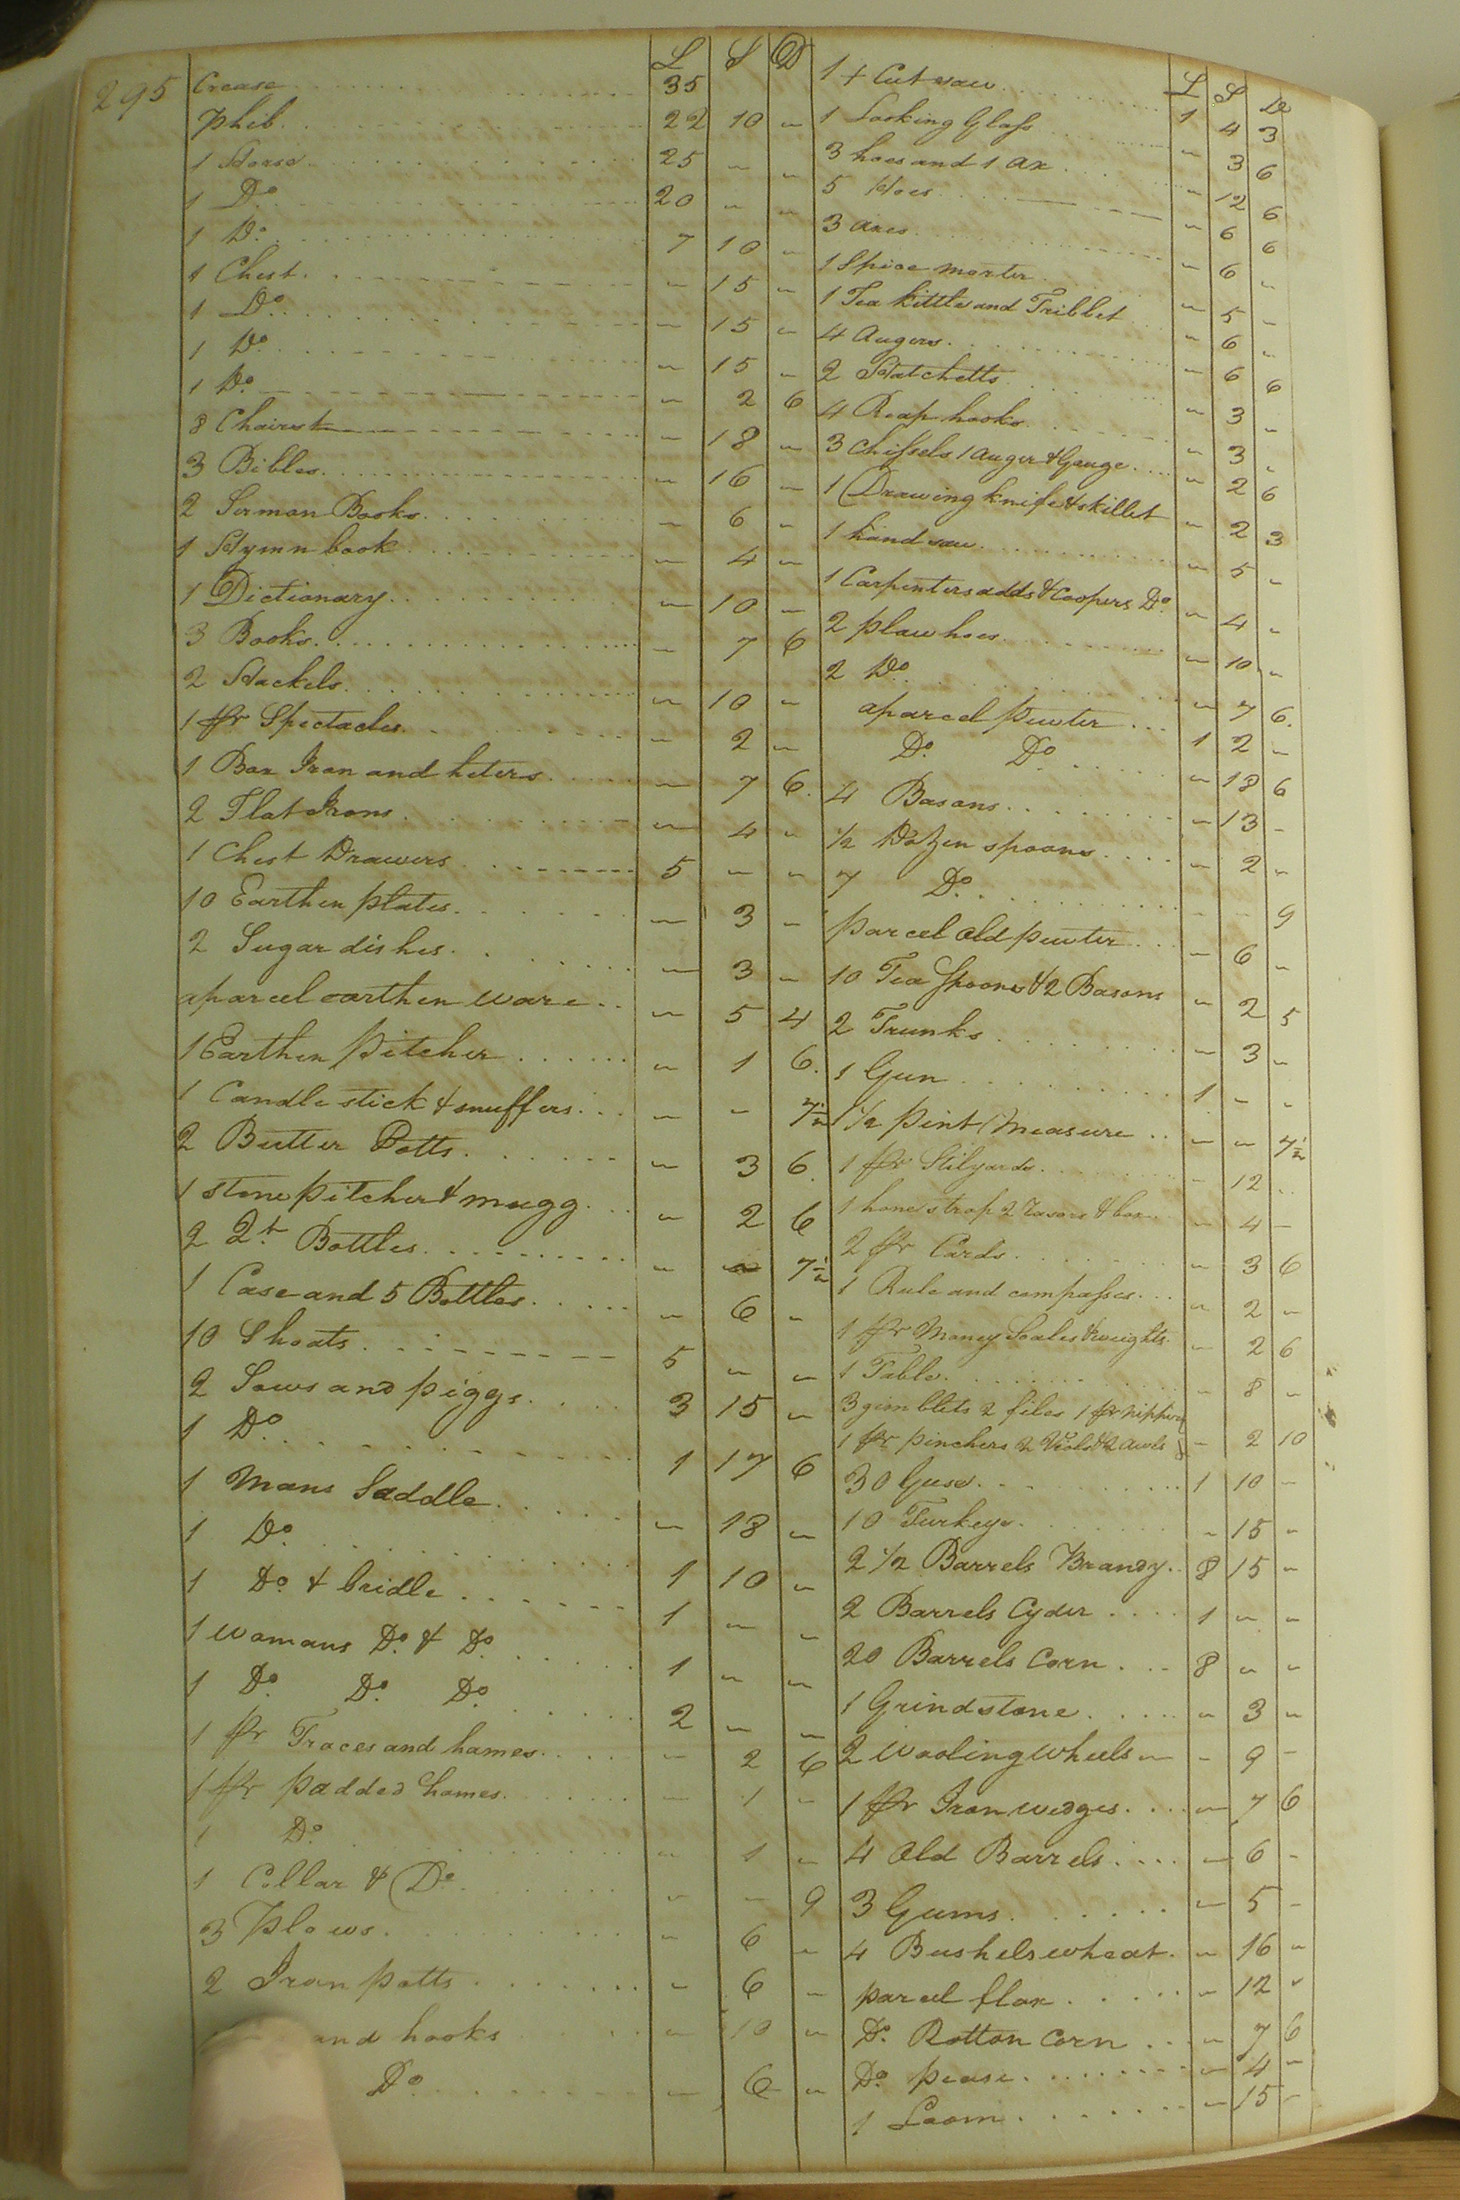 295
L S D
Crease 35
Phib 22 10 "
1 Horse 25 " "
1 Do 20 " "
1 Do 7 10 "
1 Chest " 15 "
1 Do " 15 "
1 Do " 15 "
1 Do " 2 6
8 Chairs " 18 "
3 Bibles " 16 "
2 Sermon Books " 6 "
1 Hymn book " 4 "
1 Dictionary " 10 "
3 Books " 7 6
2 Hackels " 10 "
1 pr Spectacles " 2 "
1 Box Iron and heters " 7 6
2 Flat Irons " 4 "
1 Chest Drawers 5 " "
10 Earthen plates " 3 "
2 Sugar dishes " 3 "
aparcel earthen ware " 5 4
1 Earthen Pitcher " 1 6
1 Candle stick & snuffers " " 7½
2 Butter Potts " 3 6
1 stone pitcher & mugg " 2 6
2 Qt Bottles " " 7½
1 Case and 5 Bottles " 6 "
10 Shoats 5 " "
2 Sows and piggs 3 15 "
1 Do 1 17 6
1 Mans Saddle " 18 "
1 Do 1 10 "
1 Do & bridle 1 " "
1 womans Do & Do 1 " "
1 Do Do Do 2 " "
1 pr Traces and hames " 2 6
1 pr padded hames " 1 "
1 Do " 1 "
1 Collar & Do " " 9
3 Plows " 6 "
2 Iron potts " 6 "
and hooks " 10 "
Do " 6 "
L S D
1 + Cut saw 1 4 3
1 Looking Glass " 3 6
3 hoes and 1 ax " 12 6
5 Hoes " 6 6
3 axes " 6 "
1 Spice morter " 5 "
1 Tea kittle and Tribbet " 6 "
4 Augers " 6 6
2 Hatchetts " 3 "
4 Reap hooks " 3 "
3 chissels 1 auger & Gouge " 2 6
1 Drawing knife & skillet " 2 3
1 hand saw " 5 "
1 Carpenters adds & Coopers Do " 4 "
2 plaw hoes " 10 "
2 Do " 7 6
aparcel Pewter 1 2 "
Do Do " 18 6
4 Basons " 13 "
½ Dozen spoons " 2 "
7 Do " " 9
Parcel old pewter " 6 "
10 Tea Spoons & 2 Basons " 2 5
2 Trunks " 3 "
1 Gun 1 " "
1 ½ Pint Measure " " 7½
1 pr Stilyards " 12 "
1 hone strap 2 rasors & box " 4 "
2 pr Cards " 3 6
1 Rule and compasses " 2 "
1 pr Money Scales & weights " 2 6
1 Table " 8 "
3 gimblets 2 files 1 pr nippers
1 pr pinchers 2 & 2 awls " 2 10
30 Guse 1 10 "
10 Turkeys " 15 "
2 ½ Barrels Brandy 8 15 "
2 Barrels Cyder 1 " "
20 Barrels Corn 8 " "
1 Grindstone " 3 "
2 wooling wheels " 9 "
1 pr Iron wedges " 7 6
4 Old Barrels " 6 "
3 Gums " 5 "
4 Bushels wheat " 16 "
parcel flax " 12 "
Do Rotton Corn " 7 6
Do pease " 4 "
1 Loom " 15 "